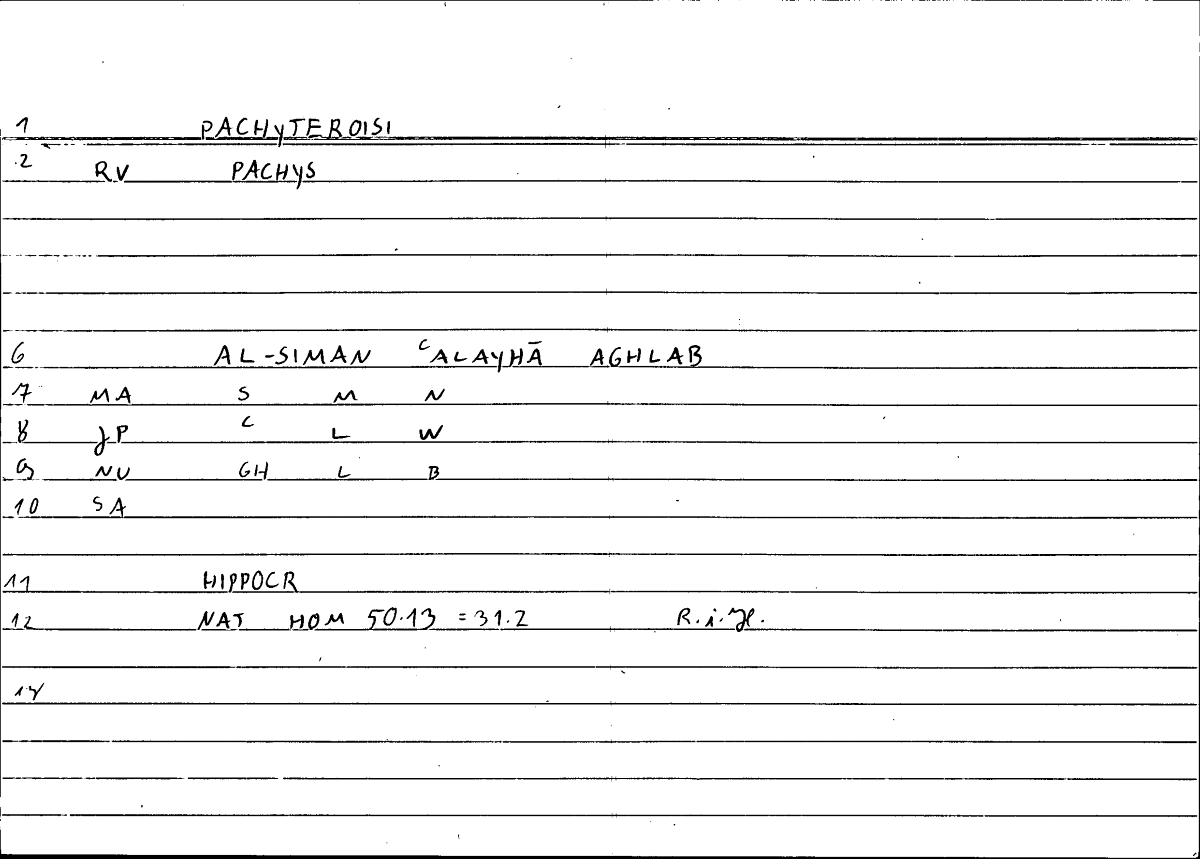 1 PACHYTEROISI
2 RV PACHYS
6 AL-SIMAN ᶜALAYHĀ AGHLAB
7 MA S M N
8 JP ᶜ L W
9 NU GH L B
10 SA
11 HIPPOCR
12 NAT HOM 50.13 = 31.2 R.i.H.
14